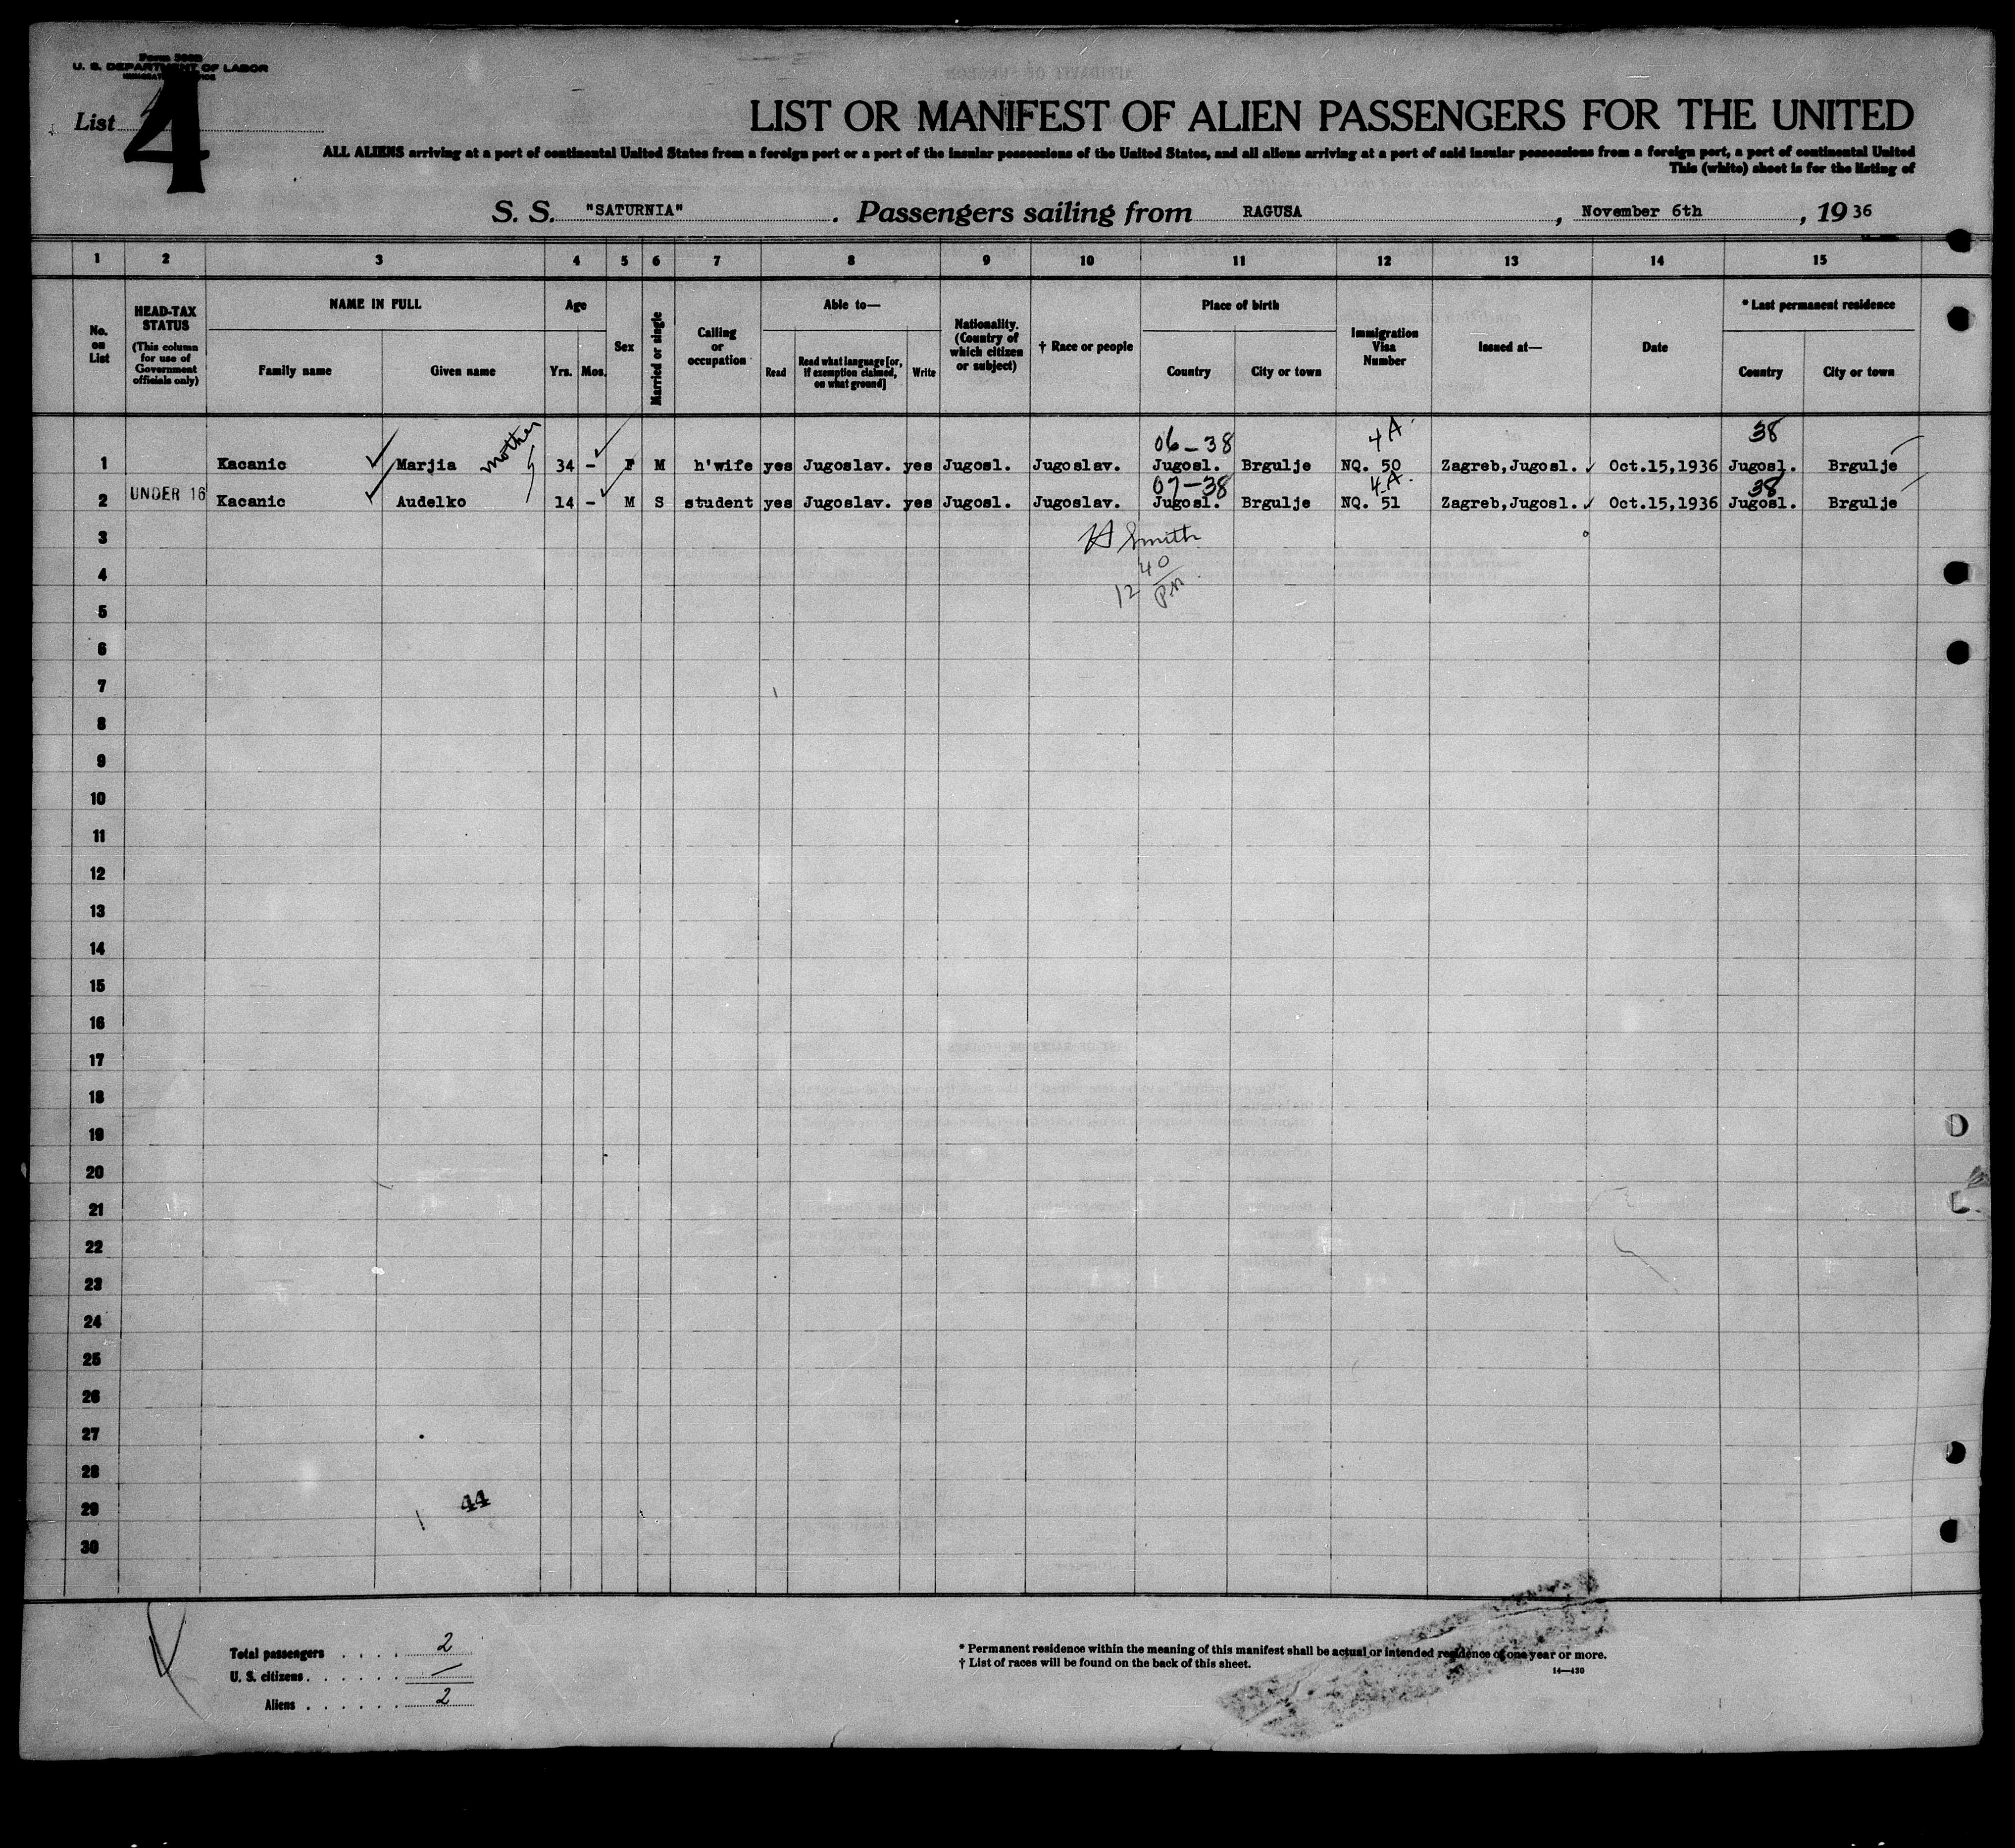 Form 500B
U. S. DEPARTMENT OF LABOR
List 4
LIST OR MANIFEST OF ALIEN PASSENGERS FOR THE UNITED
ALL ALIENS arriving at a port of continental United States from a foreign port or a port of the insular possessions of the United States, and all aliens arriving at a port of said insular possessions from a foreign port, a port of continental United
This (white) sheet is for the listing of
S. S. "SATURNIA". Passengers sailing from RAGUSA, November 6th, 1936
1 2 3 4 5 6 7 8 9 10 11 12 13 14 15
No. on List
HEAD-TAX STATUS (This column for use of Government officials only)
NAME IN FULL
Family name Given name
Age
Yrs. Mos.
Sex
Married or single
Calling or occupation
Able to—
Read Read what language [or, if exemption claimed, on what ground] Write
Nationality. (Country of which citizen or subject)
† Race or people
Place of birth
Country City or town
Immigration Visa Number
Issued at—
Date
* Last permanent residence
Country City or town
mother 06-38 4A. 38
1 Kacanic Marjia 34 - F M h'wife yes Jugoslav. yes Jugosl. Jugoslav. Jugosl. Brgulje NQ. 50 Zagreb,Jugosl. Oct.15,1936 Jugosl. Brgulje
07-38 4A. 38
2 UNDER 16 Kacanic Audelko 14 - M S student yes Jugoslav. yes Jugosl. Jugoslav. Jugosl. Brgulje NQ. 51 Zagreb,Jugosl. Oct.15,1936 Jugosl. Brgulje
3 H Smith
4 12 40 PM
5
6
7
8
9
10
11
12
13
14
15
16
17
18
19
20
21
22
23
24
25
26
27
28
29 44
30
Total passengers . . . . 2
U. S. citizens . . . . . . —
Aliens . . . . . . 2
* Permanent residence within the meaning of this manifest shall be actual or intended residence of one year or more.
† List of races will be found on the back of this sheet.
14—430